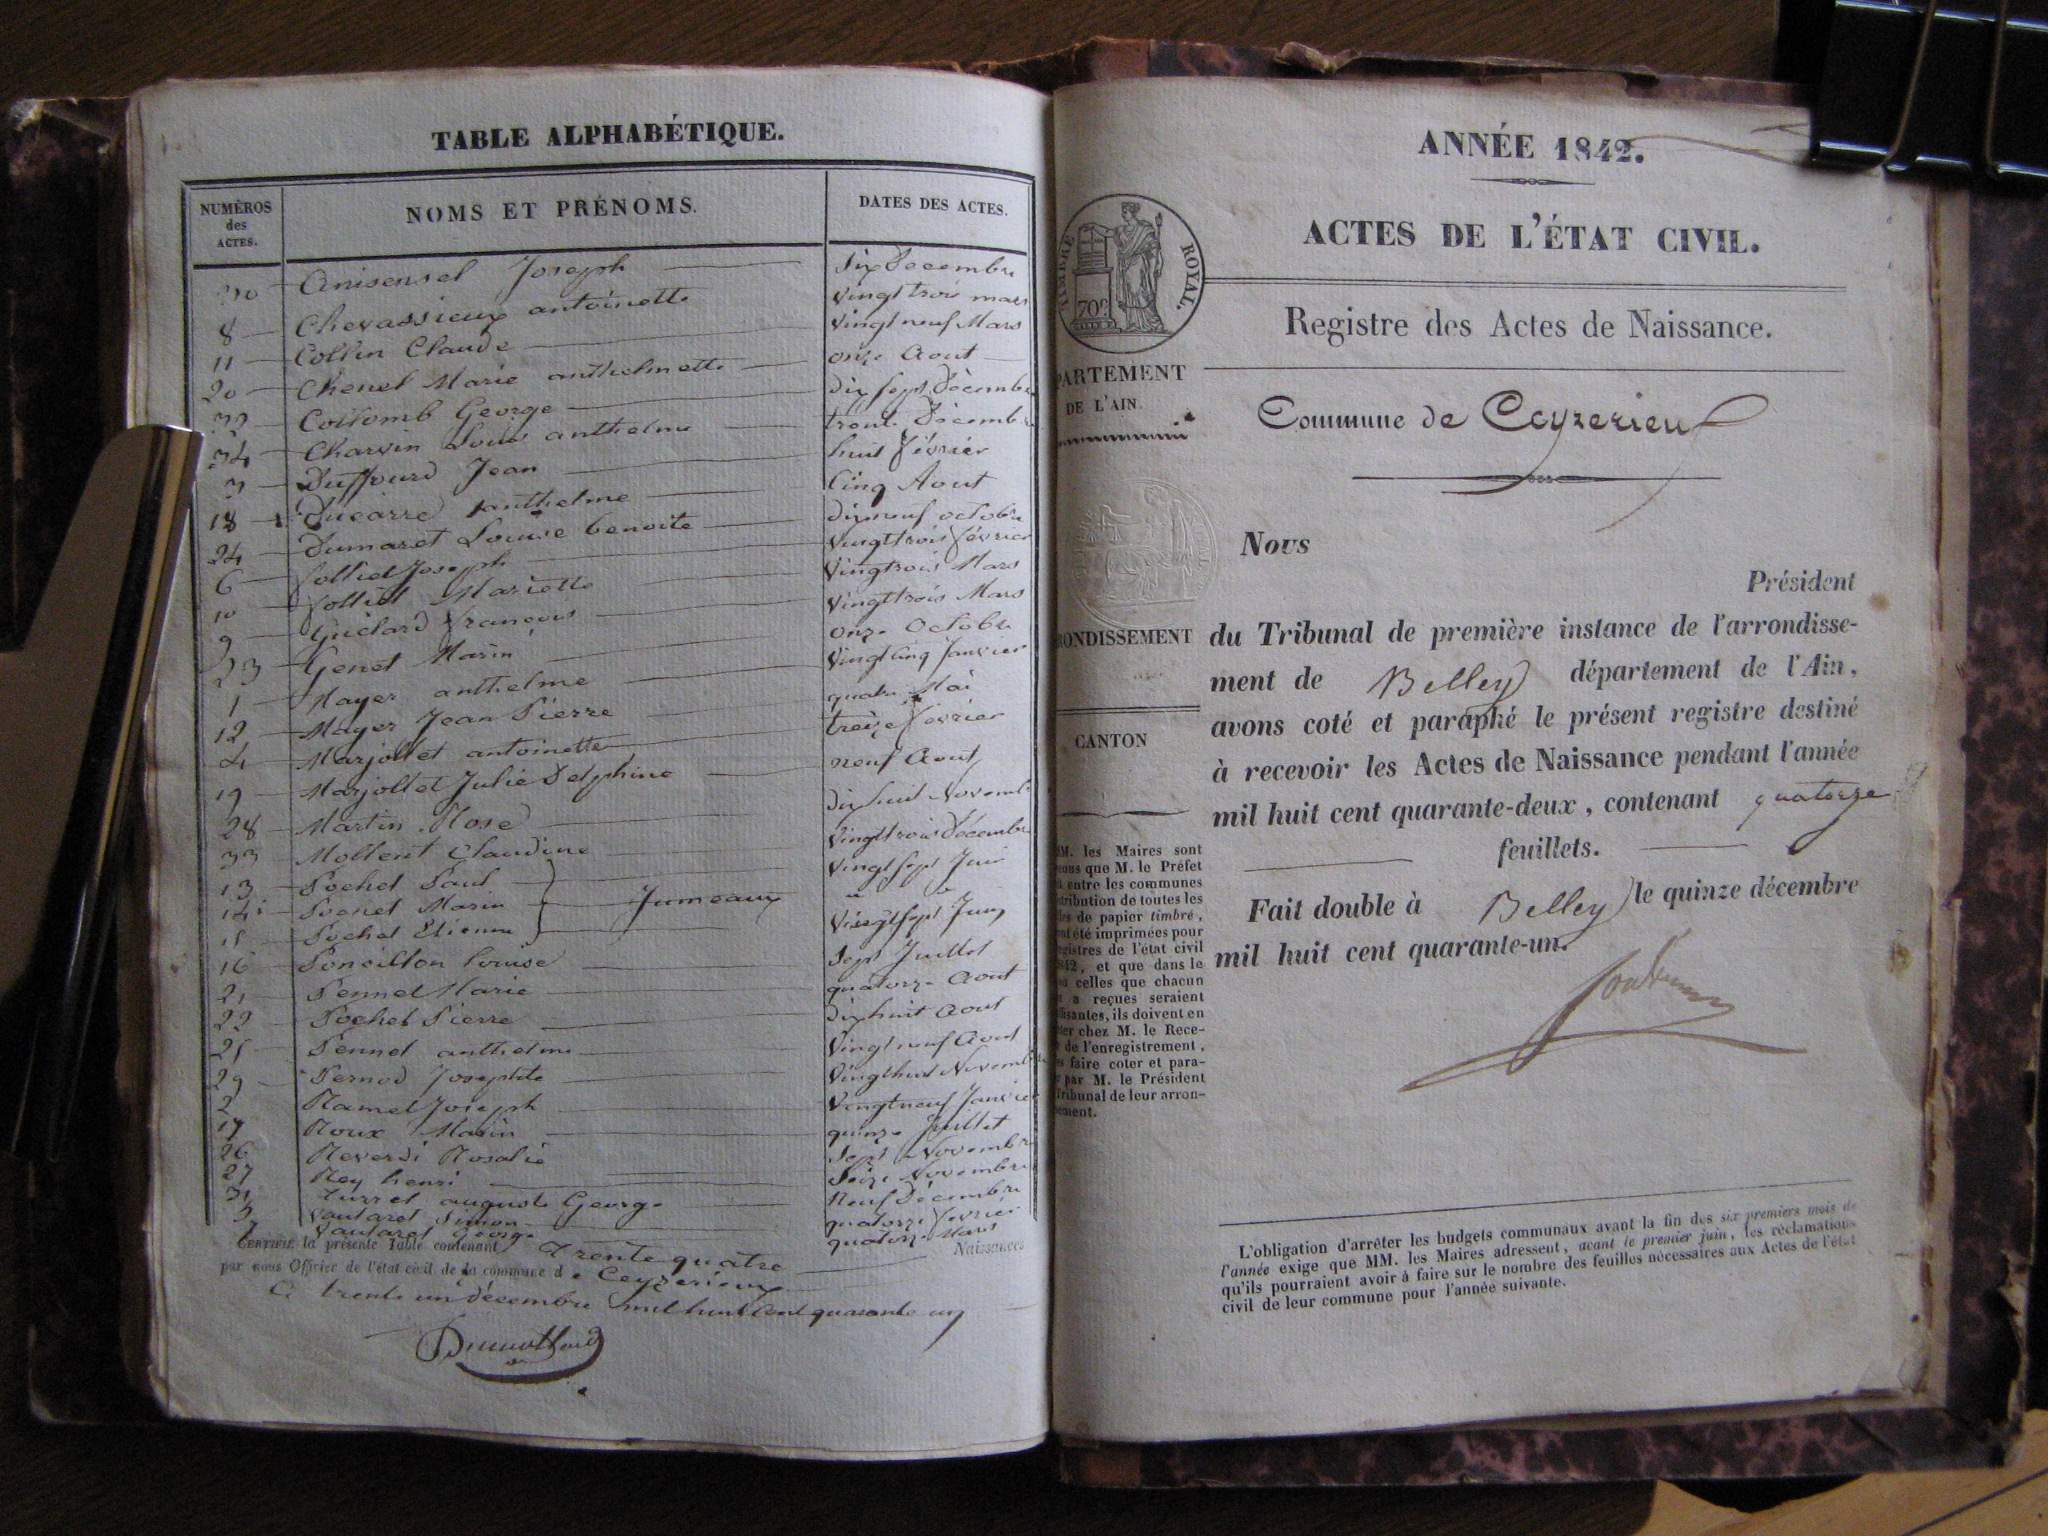 TABLE ALPHABÉTIQUE.
NUMÉROS
des
ACTES.
NOMS ET PRÉNOMS.
DATES DES ACTES.
30 Joseph Six Décembre
8 Chevassieux antoinette vingt trois mars
11 Collin Claude vingt neuf Mars
20 Chenel Marie anthelmette onze Aout
32 Collomb George dix sept Décembre
34 Charvin Louis anthelme trente Décembre
3 Duffourd Jean huit février
18 Ducarre anthelme Cinq Aout
24 Dumaret Louise benoite dixneuf octobre
6 folliet Joseph vingttrois février
10 folliet Mariette vingtrois Mars
9 Guélard françois vingttrois Mars
23 Genet Marin onze Octobre
1 Mayer anthelme vingt cinq Janvier
12 Mayer Jean Pierre quatre Mai
4 Marjollet antoinette treize février
19 Marjollet Julie Delphine neuf Aout
28 Martin Rose dix huit Novemb
33 Mollent Claudine vingt trois Décembre
13 Pochet Paul vingt sept Juin
14 Pochet Marin Jumeaux
15 Pochet Etienne vingt sept Juin
16 Poncillon Louise sept Juillet
21 Pennel Marie quatorze Aout
22 Pochet Pierre dix huit Aout
25 Pennel anthelme vingt neuf Aout
29 Pernod Josephte vingt huit Novemb
2 Ramel Joseph vingt neuf Janvier
17 Roux Marin quinze Juillet
26 Reverdi Rosalie sept Novembre
27 Rey henri seize Novembre
31 auguste George Neuf Décembre
5 Vautaret Simon quatorze février
7 Vautaret George quatorze Mars
CERTIFIÉ la présente Table contenant trente quatre Naissances
par nous Officier de l'état civil de la commune de Ceyzerieux
Ce trente un décembre mil huit cent quarante un
ANNÉE 1842.
ACTES DE L'ÉTAT CIVIL.
TIMBRE ROYAL.
70c
Registre des Actes de Naissance.
PARTEMENT
DE L'AIN.
Commune de Ceyzerieu
Nous
Président
RONDISSEMENT
du Tribunal de première instance de l'arrondisse-
ment de Belley département de l'Ain,
avons coté et paraphé le présent registre destiné
à recevoir les Actes de Naissance pendant l'année
mil huit cent quarante-deux, contenant quatorze
feuillets.
Fait double à Belley le quinze décembre
mil huit cent quarante-un.
CANTON
MM. les Maires sont
enus que M. le Préfet
entre les communes
tribution de toutes les
les de papier timbré,
nt été imprimées pour
egistres de l'état civil
842, et que dans le
celles que chacun
a reçues seraient
ffisantes, ils doivent en
ter chez M. le Rece-
de l'enregistrement,
es faire coter et para-
par M. le Président
Tribunal de leur arron-
sement.
L'obligation d'arrêter les budgets communaux avant la fin des six premiers mois de
l'année exige que MM. les Maires adressent, avant le premier juin, les réclamations
qu'ils pourraient avoir à faire sur le nombre des feuilles nécessaires aux Actes de l'état
civil de leur commune pour l'année suivante.